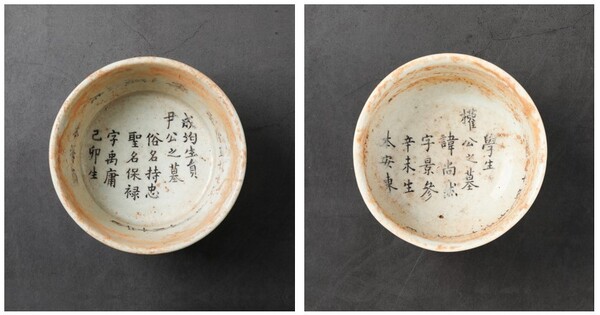 成均生員
尹公之墓
俗名持忠
聖名保禄
字禹庸
己卯生
學生
權公之墓
諱尚然
字景參
辛未生
本安東